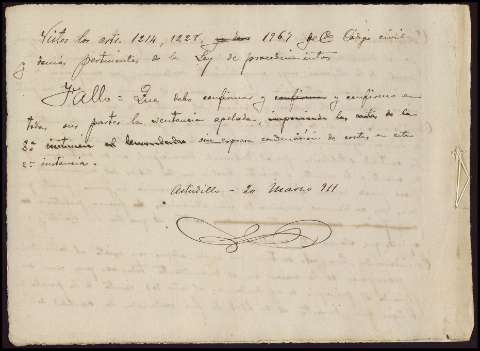 Vistos los arts. 1214, 1228, 1964 del Código civil
y demás pertinentes de la Ley de procedimientos
Fallo = Que debo confirmar y confirmo y confirmo en
todas sus partes la sentencia apelada, imponiendo las costas de la
2ª instancia al demandado sin expresa condenación de costas en esta
2ª instancia.
Astudillo - 20 Marzo 911